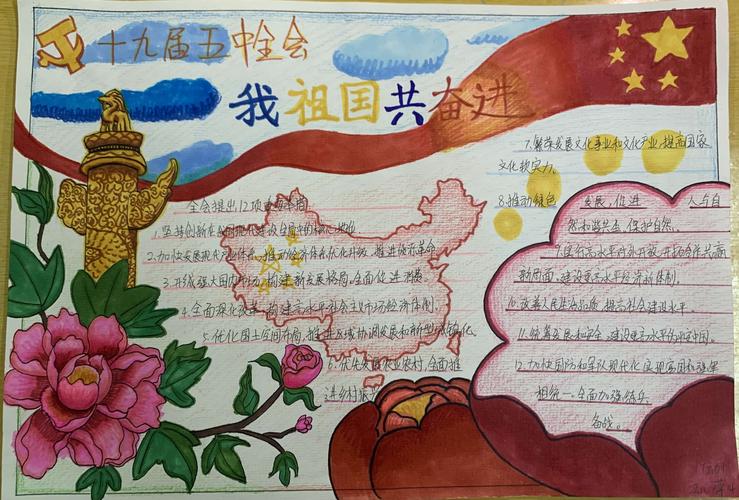 十九届五中全会
我祖国共奋进
全会提出12项重要举措
1.坚持创新在我国现代化建设全局中的核心地位
2.加快发展现代产业体系,推动经济体系优化升级,推进改革
3.形成强大国内市场,构建新发展格局,全面促进消费
4.全面深化改革,构建高水平社会主义市场经济体制.
5.优化国土空间布局,推进区域协调发展和新型城镇化
6.优先发展农业农村,全面推
进乡村振兴
7.繁荣发展文化事业和文化产业,提高国家
文化软实力.
8.推动绿色发展,促进人与自
然和谐共生 保护自然.
9.实行高水平对外开放,开拓合作共赢
新局面,建设更高水平经济新体制.
10.改善人民生活品质 提高社会建设水平.
11.统筹发展和安全,建设更高水平的平安中国.
12.加快国防和军队现代化 实现富国和强军
相统一.全面加强练兵
备战。